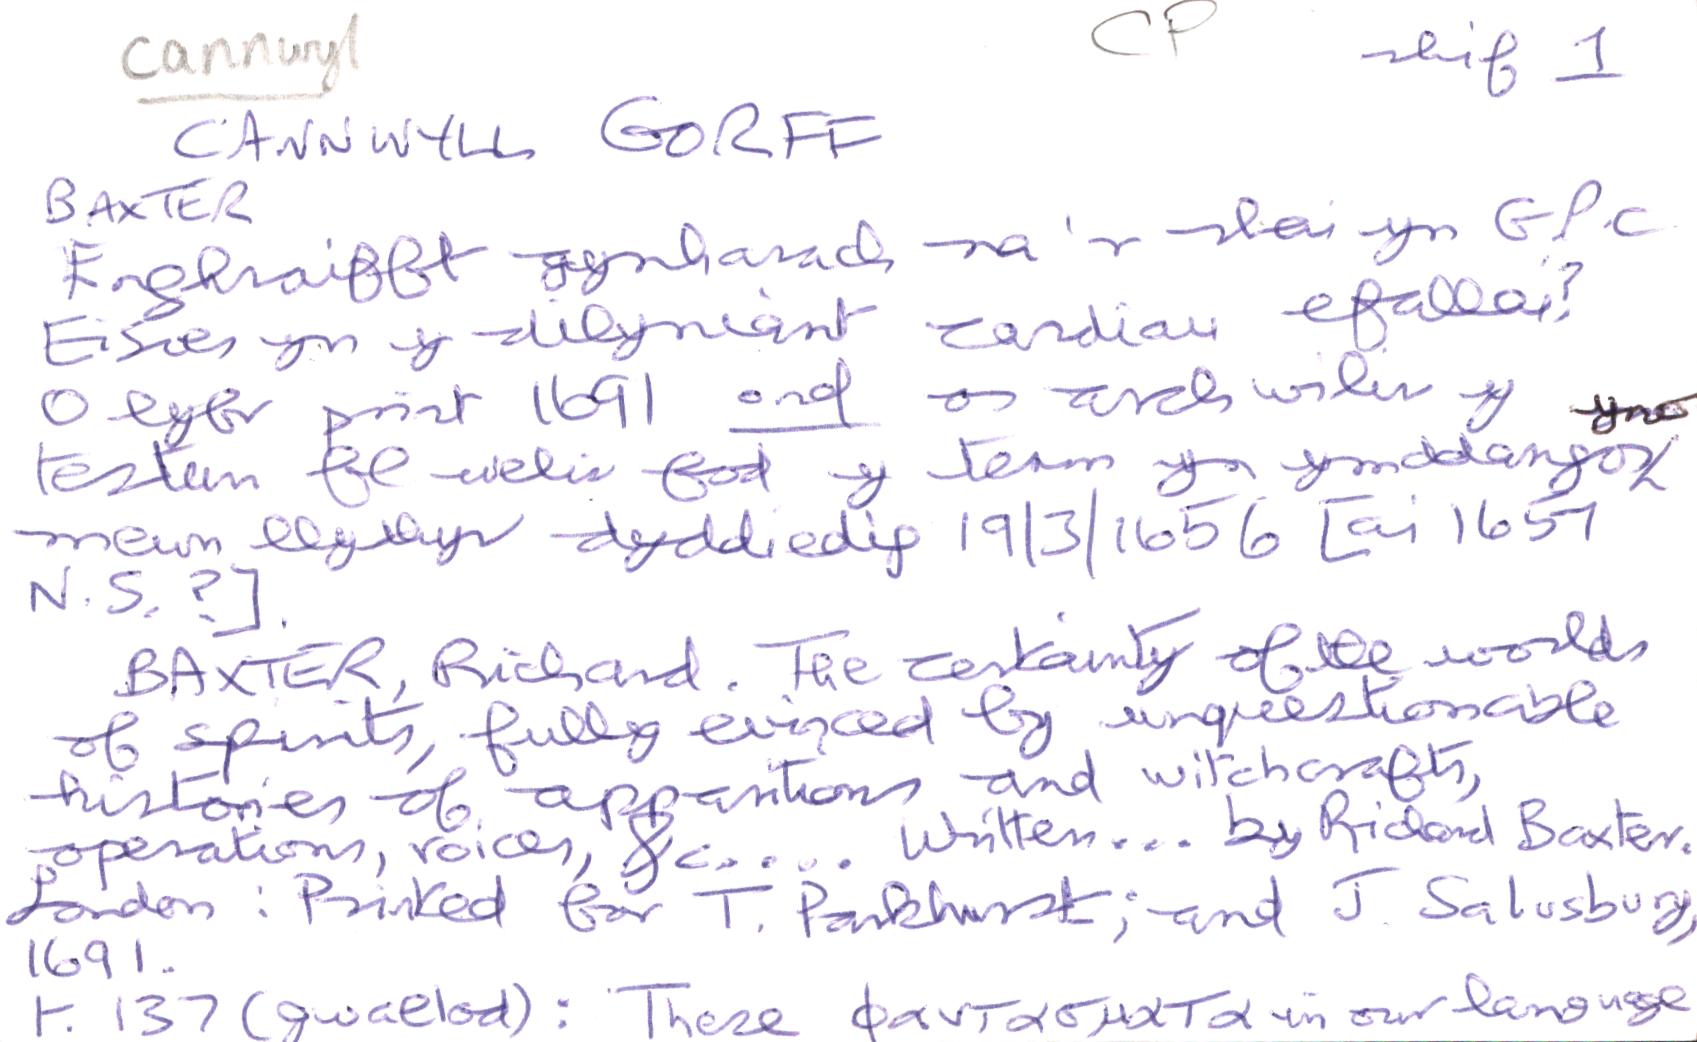 cannwyl CP slip 1
CANNWYLL GORFF
BAXTER
Enghraifft gynharach na'r rhai yn G.P.C
Eisoes yn y dilyniant cardiau efallai?
O lyfr print 1691 ond os archwilir y
testun fe welir fod y term yn ymddangos yno
mewn llythyr dyddiedig 19/3/1656 [ai 1657
N.S.?].
BAXTER, Richard. The certainty of the worlds
of spirits, fully evinced by unquestionable
histories of apparitions and witchcrafts,
operations, voices, &c..... Written... by Richard Baxter.
London : Printed for T. Parkhurst; and J. Salusbury,
1691.
t. 137 (gwaelod): These φαντασματα in our language